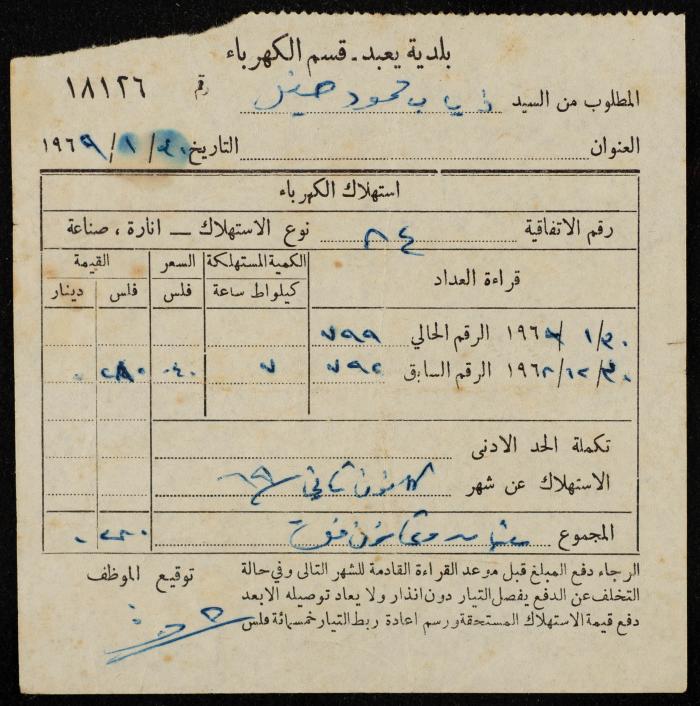 بلدية يعبد - قسم الكهرباء
رقم ١٨١٢٦
المطلوب من السيد ذياب محمود
العنوان
التاريخ ٣٠ / ١ / ١٩٦٩
استهلاك الكهرباء
رقم الاتفاقية ٨٤ نوع الاستهلاك — انارة ، صناعة
قراءة العداد الكمية المستهلكة السعر القيمة
كيلواط ساعة فلس فلس دينار
٣٠ / ١ / ١٩٦٩ الرقم الحالي ٧٩٩
٣٠ / ١٢ / ١٩٦٨ الرقم السابق ٧٩٢ ٧ ٠٤٠ ٢٨٠ ٠
تكملة الحد الادنى
الاستهلاك عن شهر كانون ثاني ٦٩
المجموع ٠
الرجاء دفع المبلغ قبل موعد القراءة القادمة للشهر التالى وفي حالة
التخلف عن الدفع يفصل التيار دون انذار ولا يعاد توصيله الابعد
دفع قيمة الاستهلاك المستحقة ورسم اعادة ربط التيار خمسمائة فلس
توقيع الموظف